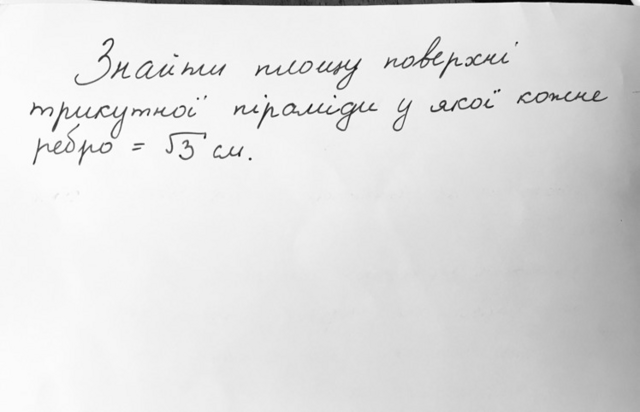 Знайти площу поверхні
трикутної піраміди у якої кожне
ребро = √3 см.